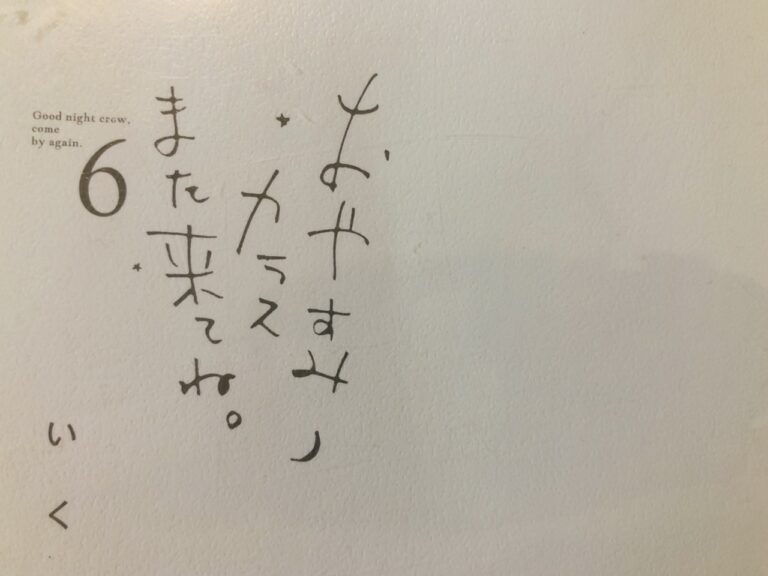 おやすみ、
カラス
また来てね。
Good night crow,
come
by again.
6
いく